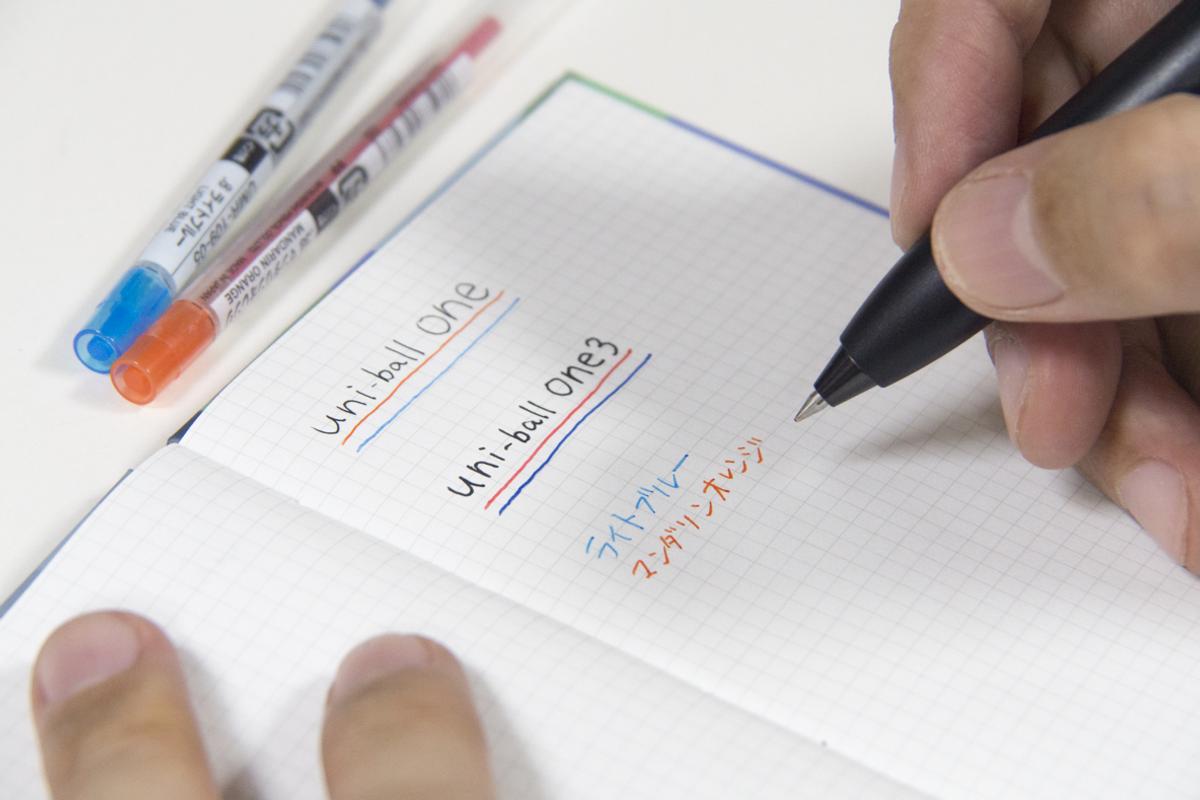 uni-ball one
uni-ball one3
ライトブルー
マンダリンオレンジ
UMR-109-05
.8 ライトブルー
LIGHT BLUE
MANDARIN ORANGE